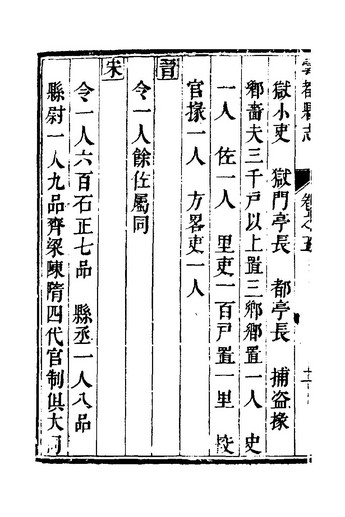 雩都縣志 卷之五
獄小吏 獄門亭長 都亭長 捕盜掾
鄉嗇夫三千戸以上置三鄉鄉置一人 史
一人 佐一人 里吏一百戸置一里 校
官掾一人 方畧吏一人
晋
令一人餘佐屬同
宋
令一人六百石正七品 縣丞一人八品
縣尉一人九品齊梁陳隋四代官制俱大同